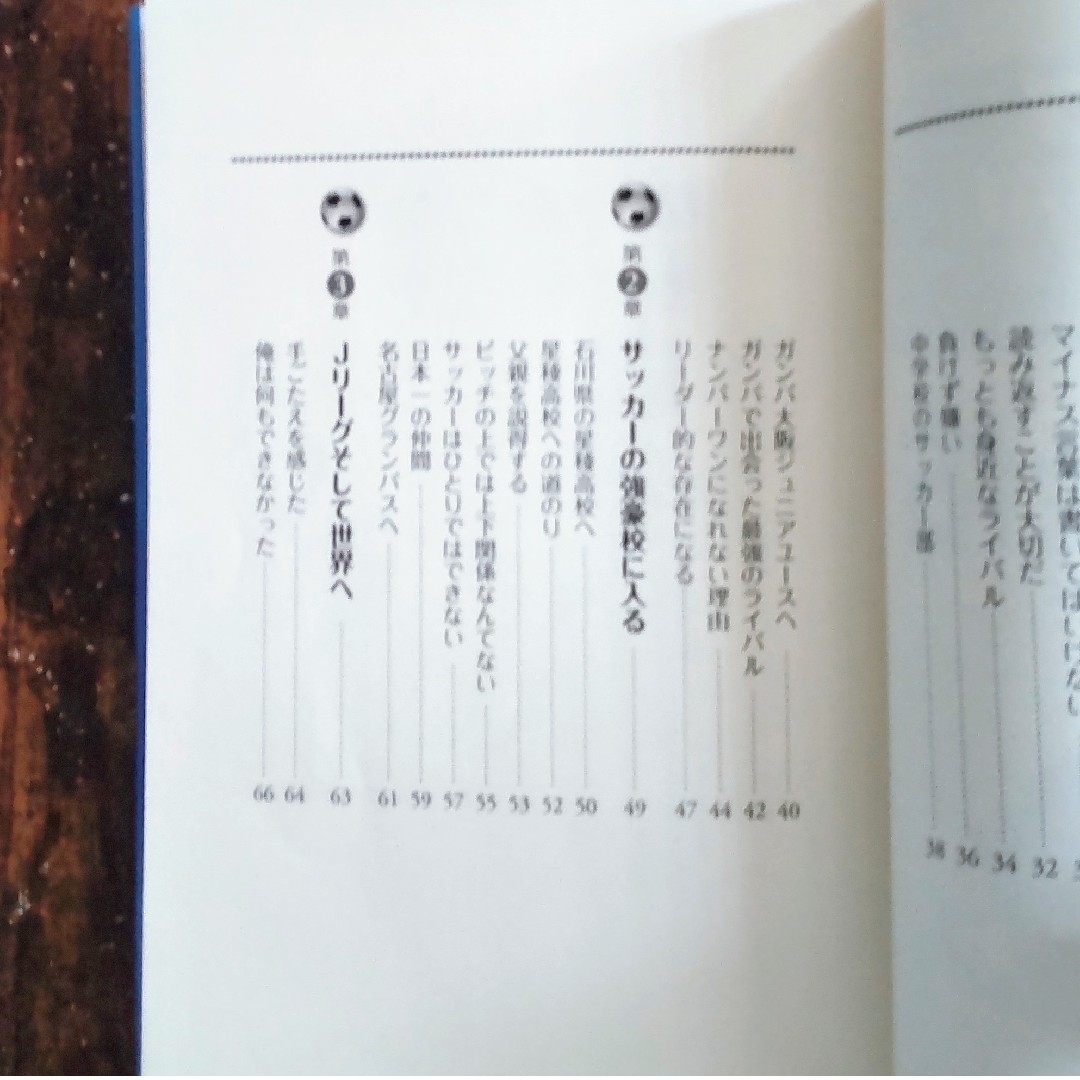 マイナス言葉は書いてはいけない
読み返すことが大切だ 32
もっとも身近なライバル 34
負けず嫌い 36
中学校のサッカー部 38
ガンバ大阪ジュニアユースへ 40
ガンバで出会った最強のライバル 42
ナンバーワンになれない理由 44
リーダー的な存在になる 47
第2章 サッカーの強豪校に入る 49
石川県の星稜高校へ 50
星稜高校への道のり 52
父親を説得する 53
ピッチの上では上下関係なんてない 55
サッカーはひとりではできない 57
日本一の仲間 59
名古屋グランパスへ 61
第3章 Jリーグそして世界へ 63
手ごたえを感じた 64
俺は何もできなかった 66